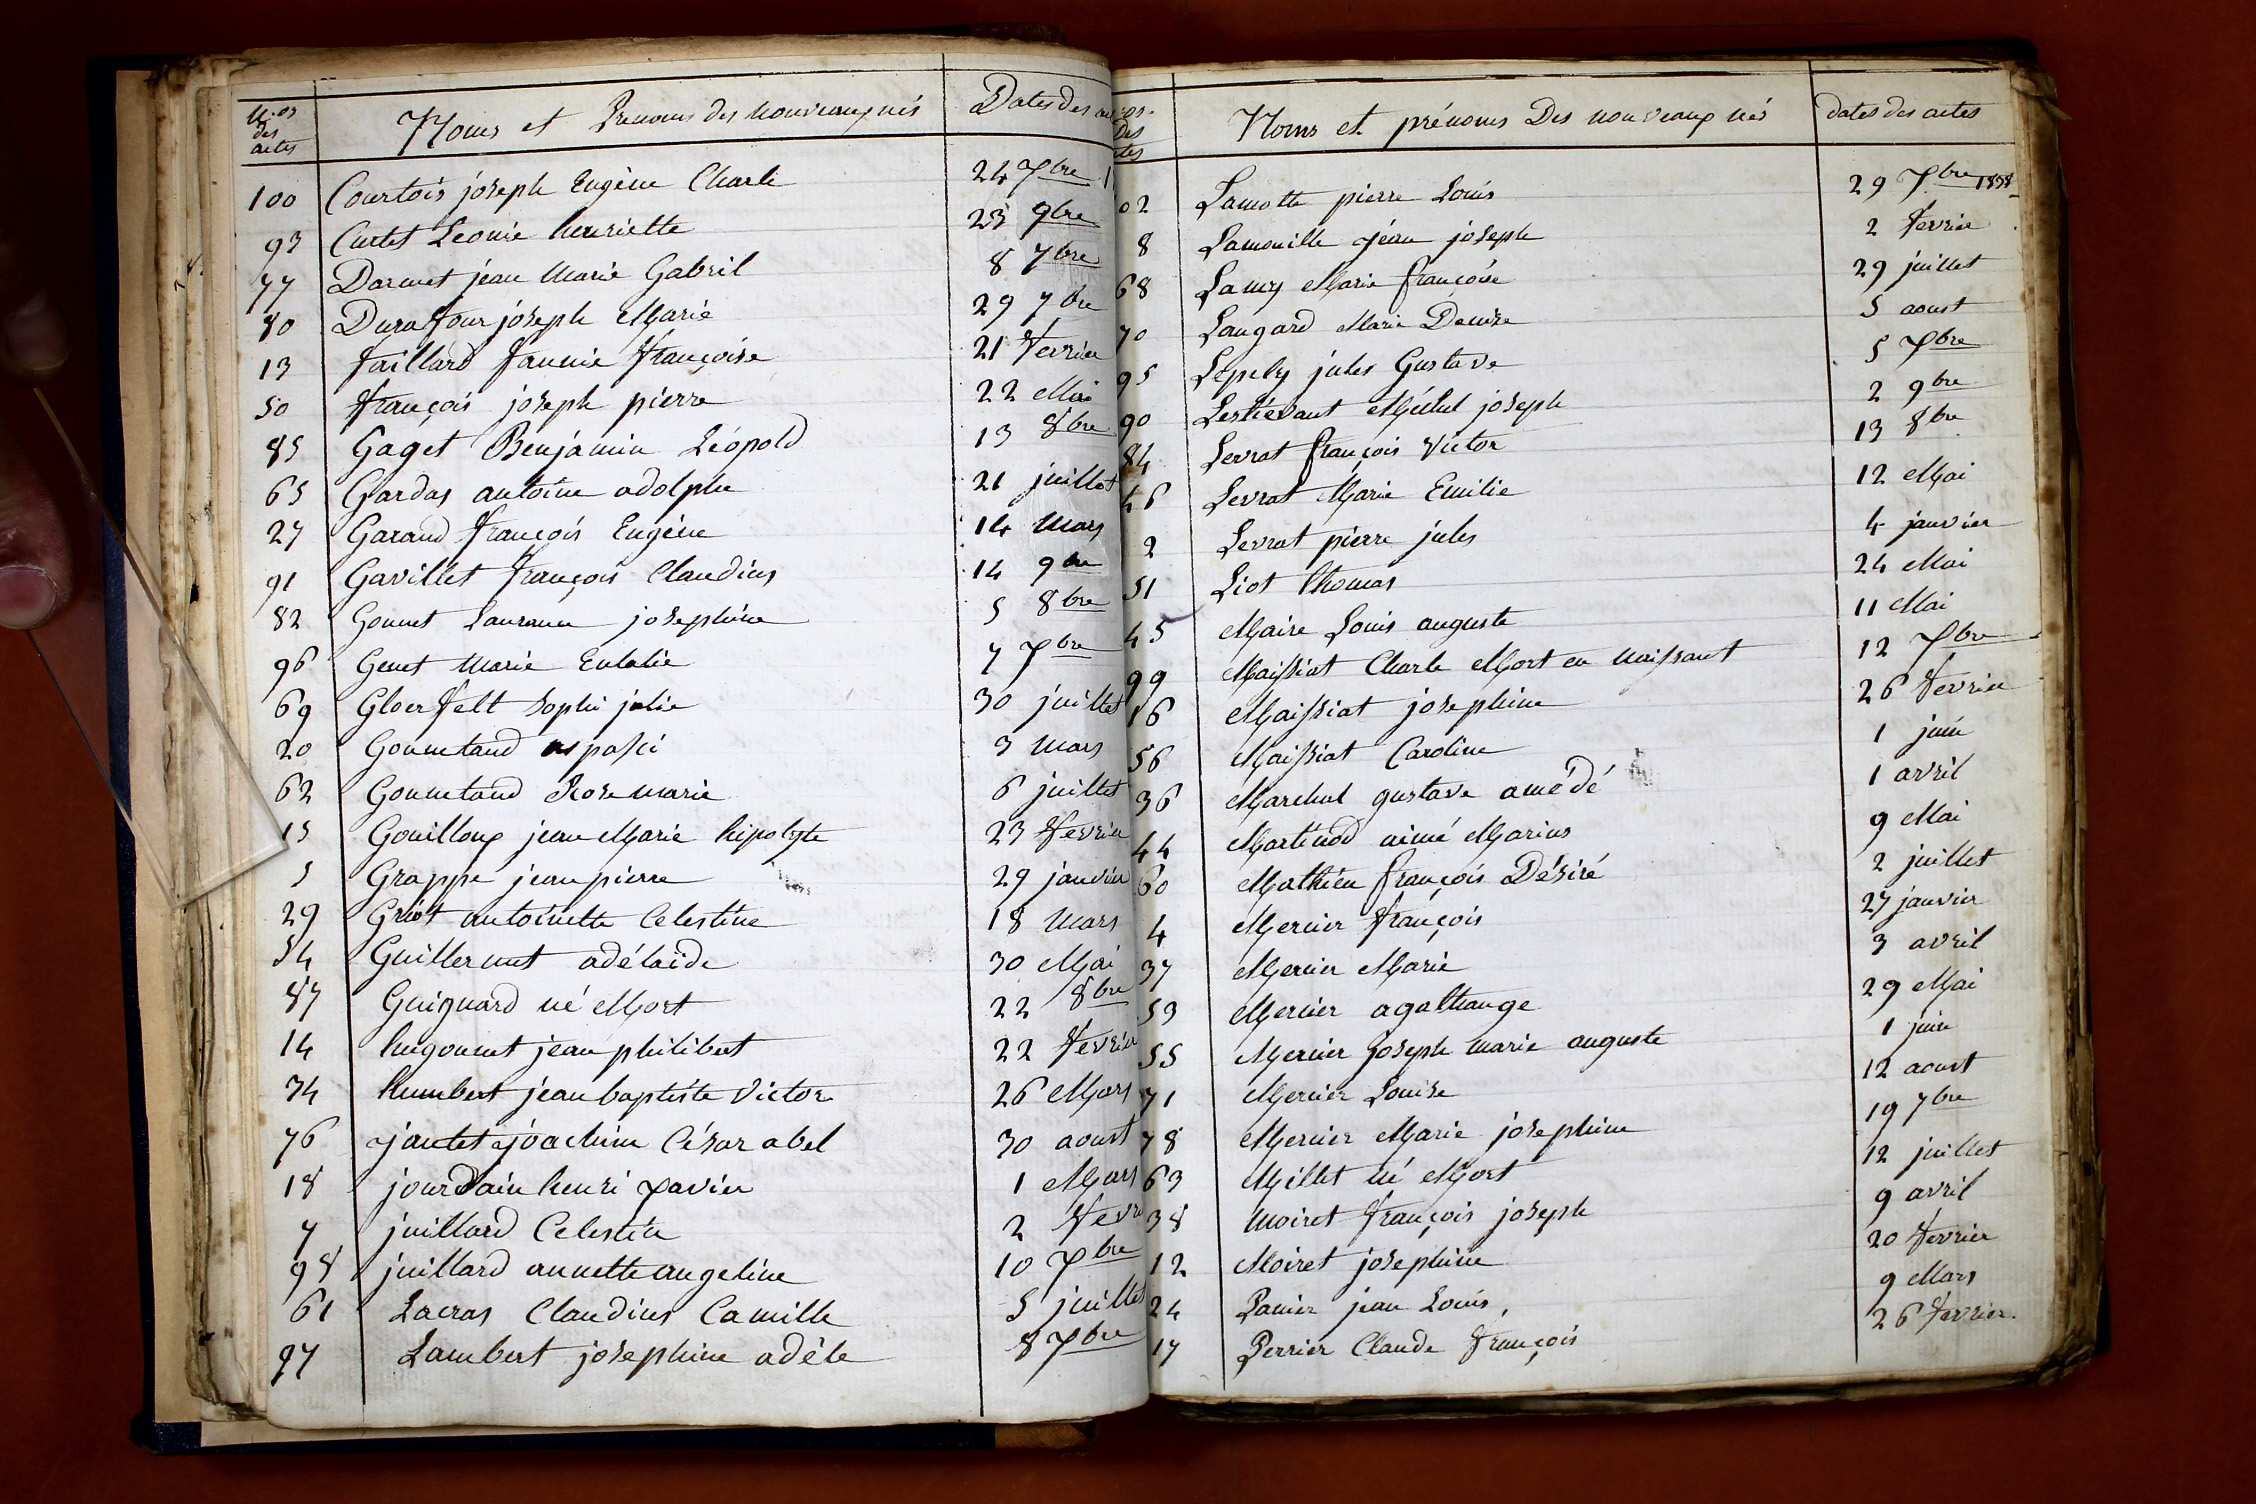 N.os des actes Noms et Prenoms des nouveaux nés Dates des
100 Courtois joseph Eugène Charle 24 Xbre
93 Curtet Leonie henriette 23 9bre
77 Darmet jean Marie Gabril 8 7bre
80 Durafour joseph Marie 29 7bre
13 faillard fannie françoise 21 fevrier
50 françois joseph pierre 22 Mai
85 Gaget Benjamin Léopold 13 8bre
65 Gardas antoine adolphe 21 juillet
27 Garand françois Eugène 14 Mars
91 Gavillet françois Claudius 14 9bre
82 Gonnet Laurance josephine 5 8bre
96 Genet Marie Eulalie 7 Xbre
69 Gloerfelt Sophi julie 30 juillet
20 Gonnetand aspasi 3 Mars
62 Gonnetand Rose marie 6 juillet
15 Gouilloux jean Marie hipolyte 23 fevrier
5 Grappe jean pierre 29 janvier
29 Griot antoinette Celestine 18 Mars
54 Guillermet adélaïde 30 Mai
87 Guignard né Mort 22 8bre
14 hugonnet jean philibert 22 fevrier
34 humbert jean baptiste Victor 26 Mars
76 jantet joachim César abel 30 aoust
18 jourdain henri Xavier 1 Mars
7 juillard Celestin 2 fevr
98 juillard annette angeline 10 Xbre
61 Lacras Claudius Camille 5 juillet
97 Lambert josephine adèle 8 Xbre
Noms et prénoms Des nouveaux nés dates des actes
02 Lamotte pierre Louis 29 Xbre 1838
8 Lamouille jean joseph 2 fevrier
68 Lamy Marie françoise 29 juillet
70 Langard Marie Denise 5 aoust
95 Lépely jules Gustave 5 Xbre
90 Lestievant Michel joseph 2 9bre
84 Levrat françois Victor 13 8bre
46 Levrat Marie Emilie 12 Mai
2 Levrat pierre jules 4 janvier
51 Liot Thomas 24 Mai
45 Maire Louis auguste 11 Mai
99 Maissiat Charle Mort en naissant 12 Xbre
16 Maissiat josephine 26 fevrier
56 Maissiat Caroline 1 juin
36 Marchal gustave amédé 1 avril
44 Martinod aimé Marius 9 Mai
60 Mathieu françois Désiré 2 juillet
4 Mercier françois 27 janvier
37 Mercier Marie 3 avril
53 Mercier agathange 29 Mai
55 Mercier joseph marie auguste 1 juin
71 Mercier Louise 12 aoust
78 Mercier Marie josephine 19 7bre
63 Millet né Mort 12 juillet
38 Moiret françois joseph 9 avril
12 Moiret josephine 20 fevrier
24 Panier jean Louis, 9 Mars
17 Perrier Claude françois 26 fevrier.